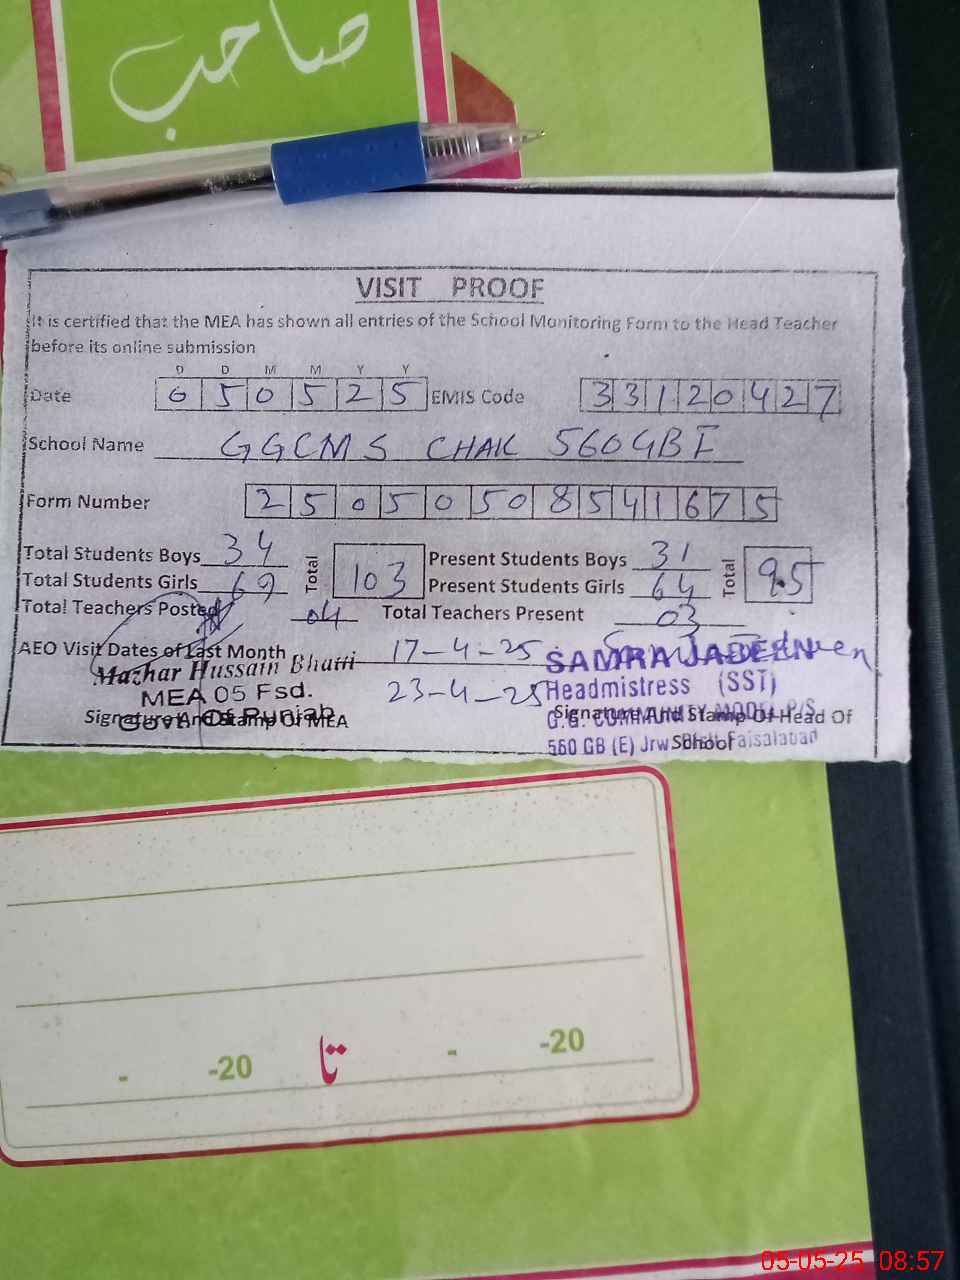 صاحب
VISIT PROOF
It is certified that the MEA has shown all entries of the School Monitoring Form to the Head Teacher
before its online submission
D D M M Y Y
Date 050525 EMIS Code 33120427
School Name GGCMS CHAK 560GB E
Form Number 25050508541675
Total Students Boys 34 Total 103 Present Students Boys 31 Total 95
Total Students Girls 69 Present Students Girls 64
Total Teachers Posted 04 Total Teachers Present 03
AEO Visit Dates of Last Month 17-4-25
23-4-25
Mazhar Hussain Bhatti
MEA 05 Fsd.
Govt. Of Punjab
Signature And Stamp Of MEA
SAMRA JABEEN
Headmistress (SST)
G.G. COMMUNITY MODEL P/S
560 GB (E) Jrw Faisalabad
Signature And Stamp Of Head Of
School
- -20 تا - -20
05-05-25 08:57